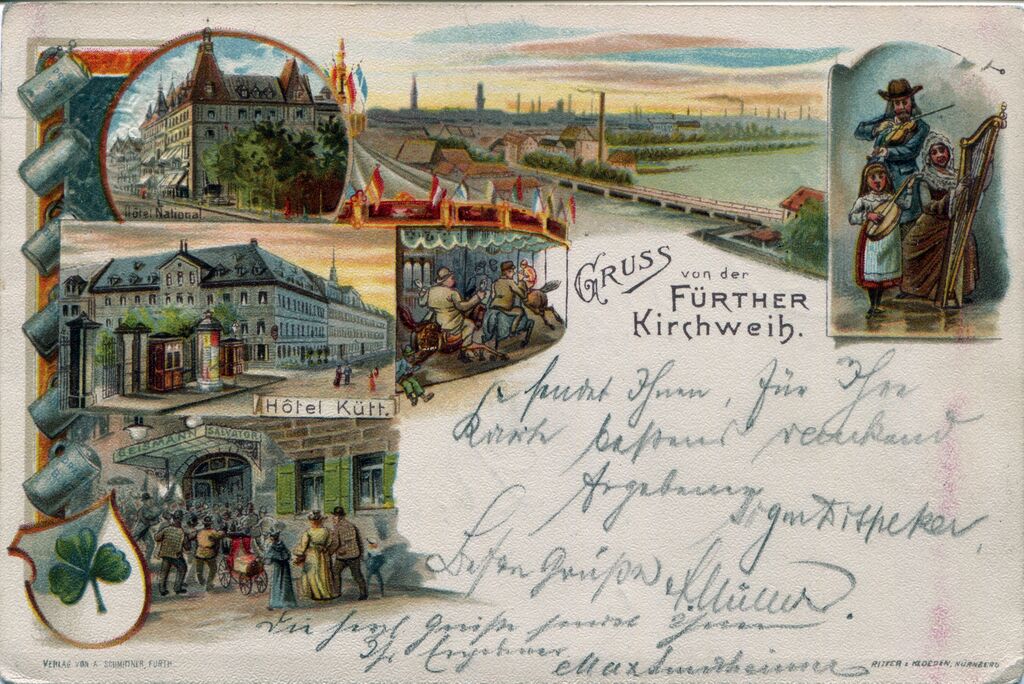 Hôtel National
GRUSS
von der
FÜRTHER
Kirchweih.
Hôtel Kütt.
SALVATOR
sendet Ihnen, für Ihre
Karte bestens dankend
Ergebener
Beste Grüße
Müller.
Grüße sendet Ihnen
Ihr Ergebener
Max
VERLAG VON A. SCHMITTNER, FÜRTH
RITTER & KLOEDEN, NÜRNBERG